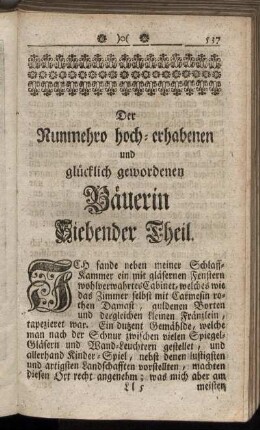 537
Der
Nunmehro hoch-erhabenen
und
glücklich gewordenen
Bäuerin
Siebender Theil.
ICH fande neben meiner Schlaff-
Kammer ein mit gläsernen Fenstern
wohlverwahrtes Cabinet, welches wie
das Zimmer selbst mit Carmesin ro-
then Damast, guldenen Borten
und dergleichen kleinen Fränzlein,
tapezieret war. Ein duzent Gemählde, welche
man nach der Schnur zwischen vielen Spiegel-
Gläsern und Wand-Leuchtern gestellet, und
allerhand Kinder-Spiel, nebst denen lustigsten
und artigsten Landschafften vorstellten, machten
diesen Ort recht angenehm; was mich aber am
Ll 5 meisten